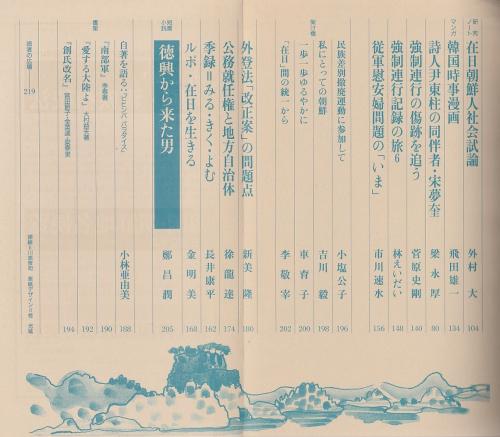 研究ノート
在日朝鮮人社会試論 外村 大 104
マンガ
韓国時事漫画 飛田雄一 134
詩人尹東柱の同伴者・宋夢奎 梁永厚 80
強制連行の傷跡を追う 菅原史剛 140
強制連行記録の旅6 林えいだい 148
従軍慰安婦問題の「いま」 市川速水 156
架け橋
民族差別撤廃運動に参加して 小塩公子 196
私にとっての朝鮮 吉川 毅 198
一歩一歩ゆるやかに 車育子 200
「在日」間の統一から 李敬宰 202
外登法「改正案」の問題点 新美 隆 180
公務就任権と地方自治体 徐龍達 174
季録=みる・きく・よむ 長井康平 162
ルポ・在日を生きる 金明美 168
短期小説
徳興から来た男 鄭昌潤 205
自著を語る・『コロンバ・パラダイス』 小林亜由美 188
書架
『南部軍』 李泰著 190
『愛する大陸よ』 大村益夫著 192
『創氏改名』 宮田節子・金英達・梁泰昊 194
読者の広場 219